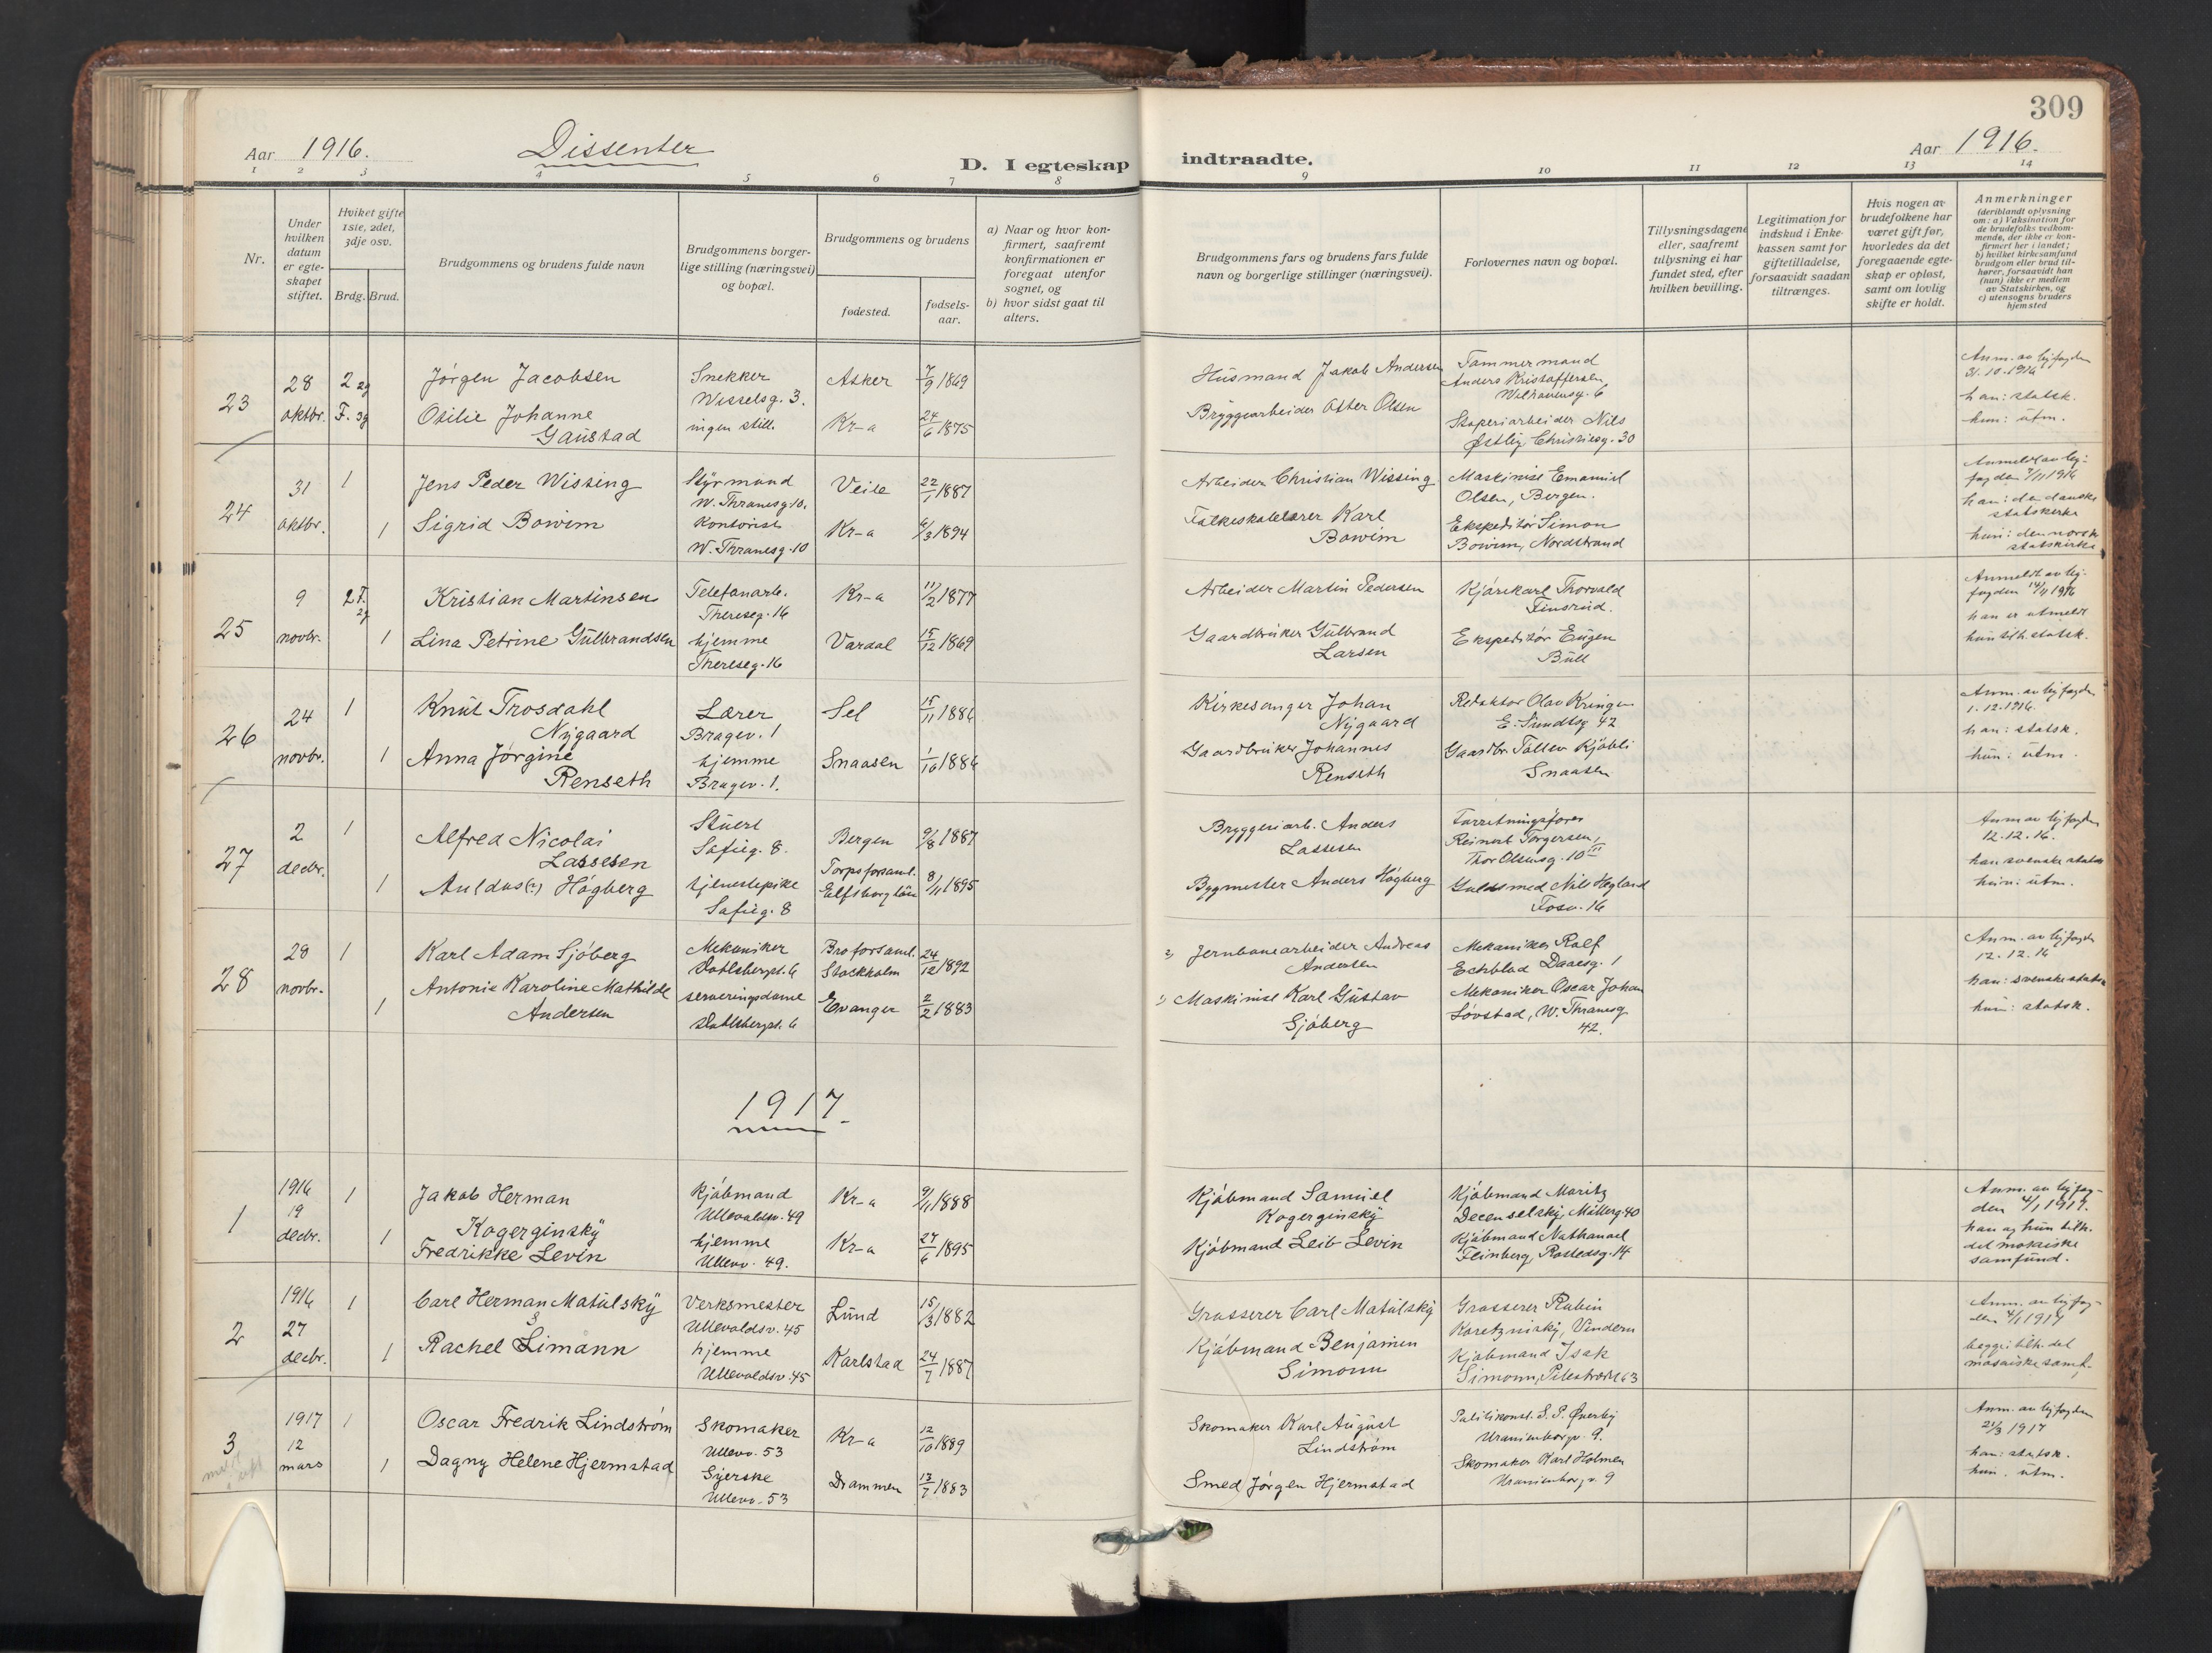 309
Aar 1916.
Dissenter
D. I egteskap
indtraadte.
Aar 1916.
1 2 3 4 5 6 7 8 9 10 11 12 13 14
Nr.
Under
hvilken
datum
er egte-
skapet
stiftet.
Hviket gifte
1ste, 2det,
3dje osv.
Brdg. Brud.
Brudgommens og brudens fulde navn
Brudgommens borger-
lige stilling (næringsvei)
og bopæl.
Brudgommens og brudens
fødested.
fødsels-
aar.
a) Naar og hvor kon-
firmert, saafremt
konfirmationen er
foregaat utenfor
sognet, og
b) hvor sidst gaat til
alters.
Brudgommens fars og brudens fars fulde
navn og borgerlige stillinger (næringsvei).
Forlovernes navn og bopæl.
Tillysningsdagene
eller, saafremt
tillysning ei har
fundet sted, efter
hvilken bevilling.
Legitimation for
indskud i Enke-
kassen samt for
giftetilladelse,
forsaavidt saadan
tiltrænges.
Hvis nogen av
brudefolkene har
været gift før,
hvorledes da det
foregaaende egte-
skap er opløst,
samt om lovlig
skifte er holdt.
Anmerkninger
(deriblandt oplysning
om: a) Vaksination for
de brudefolks vedkom-
mende, der ikke er kon-
firmert her i landet;
b) hvilket kirkesamfund
brudgom eller brud til-
hører, forsaavidt han
(hun) ikke er medlem
av Statskirken, og
c) utensogns bruders
hjemsted
23
28
oktbr.
2 2g
F. 3g
Jørgen Jacobsen
Otilie Johanne
Gaustad
Snekker
Wesselsg. 3.
ingen still.
Asker
Kr-a
7/9 1869
24/6 1875
Husmand Jakob Andersen
Bryggearbeider Olsen
Tømmermand
Anders Kristoffersen,
Nils
Østby, Christiesg. 30
Anm. av byfogden
31.10.1916
han: statsk.
hun: utm.
24
31
oktbr.
1
1
Jens Peder Wissing
Sigrid Bowim
Styrmand
W. Thranesg 10.
Kontorist
W. Thranesg. 10
Veile
Kr-a
22/1 1887
6/3 1894
Arbeider Christian Wissing.
Folkeskolelærer Karl
Bowim
Maskinist Emanuel
Olsen, Bergen.
Ekspeditør Simon
Bowim, Nordstrand
Anmeldt av by-
fogden 7/11 1916
han: den danske
statskirke
hun: den norske
statskirke
25
9
novbr.
2 F.
2g
1
Kristian Martinsen
Lina Petrine Gulbrandsen
Telefonarb.
Thereseg. 16
hjemme
Thereseg. 16
Kr-a
Vardal
11/2 1877
15/12 1869
Arbeider Martin Pedersen
Gaardbruker Gulbrand
Larsen
Kjørekarl Thorvald
Finsrud.
Ekspeditør Eugen
Bull
Anmeldt av by-
fogden 14/11 1916
han er utmeldt
hun tilh. statsk.
26
24
novbr.
1
1
Knut Trosdahl
Nygaard
Anna Jørgine
Renseth
Lærer
Bragev. 1
hjemme
Bragev. 1.
Sel
Snaasen
15/11 1886
1/10 1886
Kirkesanger Johan
Nygaard
Gaardbruker Johannes
Renseth
Redaktør Olav Kringen
E. Sundtsg 42
Gaardbr. Tollev Kjøbli
Snaasen
Anm. av byfogden
1.12.1916.
han: statsk.
hun: utm.
27
2
decbr.
1
1
Alfred Nicolai
Lassesen
Auldus(?) Högberg
Stuert
Sofieg. 8.
tjenestepike
Sofieg. 8
Bergen
Torps forsaml.
Elfsborg län
9/8 1887
8/11 1895
Bryggeriarb. Anders
Lassesen
Bygmester Anders Högberg
Forretningsfører
Reinert Torgersen,
Thor Olsensg. 10 III
Guldsmed Nils Hegland
Fosv. 16
Anm av byfogden
12.12.16.
han svenske statsk
hun: utm.
28
28
novbr.
1
1
Karl Adam Sjöberg
Antonie Karoline Mathilde
Andersen
Mekaniker
Dahlsbergst. 6
serveringsdame
Dahlsbergst. 6
Bro forsaml.
Stockholm
Evanger
24/12 1892
2/2 1883
2) Jernbanearbeider Andreas
Andersen
1) Maskinist Karl Gustav
Sjöberg
Mekaniker Rolf
Echblad Daaesg. 1
Mekaniker Oscar Johan
Løvstad, W. Thranesg
42.
Anm. av byfogden
12.12.16
han: svenske statsk
hun: statsk.
1917.
1
1916
19
decbr.
1
1
Jakob Herman
Kogerginsky
Fredrikke Levin
Kjøbmand
Ullevoldsv. 49
hjemme
Ullevv. 49.
Kr-a
Kr-a
9/11 1888
27/6 1895
Kjøbmand Samuel
Kogerginsky
Kjøbmand Leib Levin
Kjøbmand Moritz
Decenselsky, Møllerg 40
Kjøbmand Nathanael
Feinberg, Rostedsg. 14
Anm. av byfog-
den 4/1 1917.
han og hun tilh.
det mosaiske
samfund.
2
1916
27
decbr.
1
1
Carl Herman Matulsky
S
Rachel Limann
Verksmester
Ullevoldsv. 45
hjemme
Ullevoldsv. 45
Lund
Karlstad
15/3 1882
24/7 1887
Grosserer Carl Matulsky
Kjøbmand Benjamin
Simonn
Grosserer Rubin
Koretznisky, Vindern
Kjøbmand Isak
Simonn, Pilestrædet 63
Anm. av byfog-
den 4/1 1917
begge tilh. det
mosaiske samf.
3
1917
12
mars
1
1
Oscar Fredrik Lindstrøm
Dagny Helene Hjermstad
Skomaker
Ullevv. 53
Syerske
Ullevv. 53
Kr-a
Drammen
12/10 1889
13/7 1883
Skomaker Karl August
Lindstrøm
Smed Jørgen Hjermstad
Politikonst. S. P. Øverby
Uranienborgv. 9.
Skomaker Karl Holmen
Uranienborgv. 9
Anm. av byfogden
21/3 1917
han: statsk.
hun. utm.